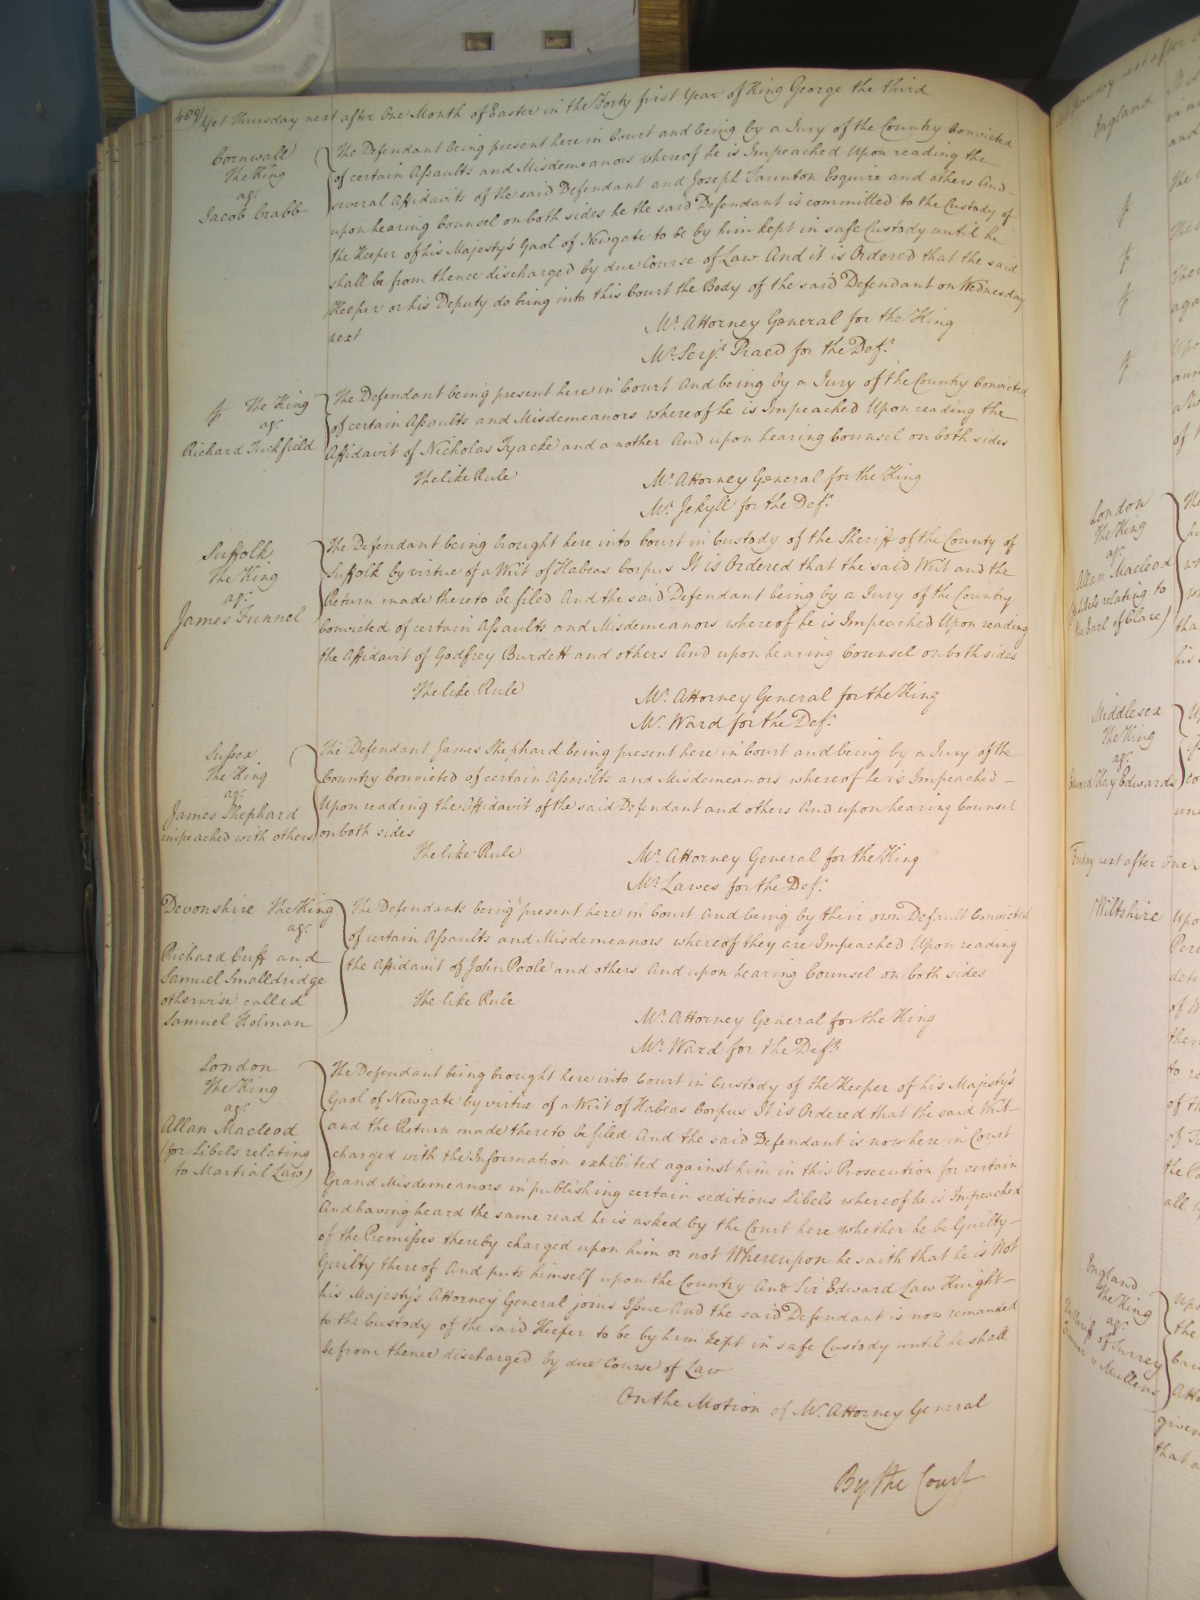 Yet Thursday next after One Month of Easter in the Forty first Year of King George the third
Cornwall
The King
agt.
Jacob Crabb
The Defendant being present here in Court and being by a Jury of the Country Convicted
of certain Assaults and Misdemeanors whereof he is Impeached Upon reading the
several Affidavits of the said Defendant and Joseph Taunton Esquire and others And
upon hearing Counsel on both sides he the said Defendant is committed to the Custody of
the Keeper of his Majesty's Gaol of Newgate to be by him kept in safe Custody until he
shall be from thence discharged by due Course of Law And it is Ordered that the said
Keeper or his Deputy do bring into this Court the Body of the said Defendant on Wednesday
next
Mr. Attorney General for the King
Mr. Serjt. Praed for the Deft.
The King
agt.
Richard Tuckfield
The Defendant being present here in Court And being by a Jury of the Country Convicted
of certain Assaults and Misdemeanors whereof he is Impeached Upon reading the
Affidavit of Nicholas Tyacke and another And upon hearing Counsel on both sides
The like Rule
Mr. Attorney General for the King
Mr. Jekyll for the Deft.
Suffolk
The King
agt.
James Funnel
The Defendant being brought here into Court in Custody of the Sheriff of the County of
Suffolk by virtue of a Writ of Habeas Corpus It is Ordered that the said Writ and the
Return made thereto be filed And the said Defendant being by a Jury of the Country
Convicted of certain Assaults and Misdemeanors whereof he is Impeached Upon reading
the Affidavit of Godfrey Burdett and others And upon hearing Counsel on both sides
The like Rule
Mr. Attorney General for the King
Mr. Ward for the Deft.
Sussex
The King
agt.
James Shephard
impeached with others
The Defendant James Shephard being present here in Court and being by a Jury of the
Country Convicted of certain Assaults and Misdemeanors whereof he is Impeached
Upon reading the Affidavit of the said Defendant and others And upon hearing Counsel
on both sides
The like Rule
Mr. Attorney General for the King
Mr. Lawes for the Deft.
Devonshire The King
agt.
Richard Cuff and
Samuel Smalldridge
otherwise called
Samuel Holman
The Defendants being present here in Court And being by their own Default Convicted
of certain Assaults and Misdemeanors whereof they are Impeached Upon reading
the Affidavit of John Poole and others And upon hearing Counsel on both sides
The like Rule
Mr. Attorney General for the King
Mr. Ward for the Defts.
London
The King
agt.
Allan Macleod
(for Libels relating
to Martial Law)
The Defendant being brought here into Court in Custody of the Keeper of his Majesty's
Gaol of Newgate by virtue of a Writ of Habeas Corpus It is Ordered that the said Writ
and the Return made thereto be filed And the said Defendant is now here in Court
charged with the Information exhibited against him in this Prosecution for certain
Grand Misdemeanors in publishing certain seditious Libels whereof he is Impeached
And having heard the same read he is asked by the Court here whether he be Guilty
of the Premisses thereby charged upon him or not Whereupon he saith that he is Not
Guilty thereof And puts himself upon the Country And Sir Edward Law Knight
his Majesty's Attorney General joins Issue And the said Defendant is now remanded
to the Custody of the said Keeper to be by him kept in safe Custody until he shall
be from thence discharged by due Course of Law
On the Motion of Mr. Attorney General
By the Court
England
London
The King
agt.
Allan Macleod
(for Libels relating to
the Earl of Clare)
Middlesex
The King
agt.
Edward Hay Edwards
Friday next after One
Wiltshire
England
The King
agt.
The Sheriff of Surrey